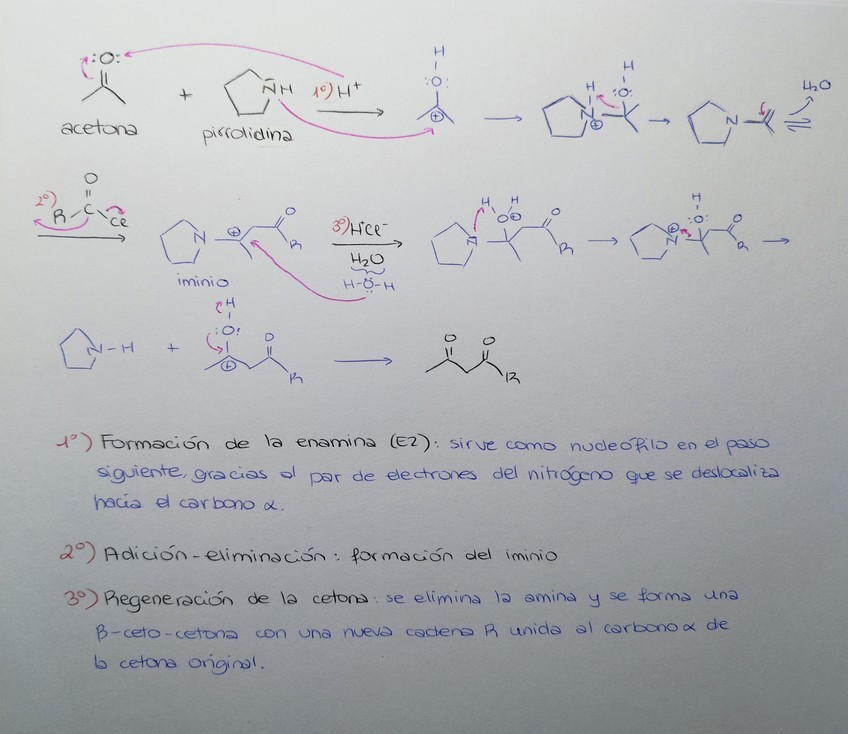 :O:
H
:O:
H
:O:
H
N
H₂O
+
NH
1º) H⁺
acetona
pirrolidina
2º)
O
R-C
Cl
N
O
R
iminio
3º) H⁺Cl⁻
H₂O
H-O-H
H H
O
N
O
R
H
:O:
N
O
R
N-H
+
H
:O:
O
R
O O
R
1º) Formación de la enamina (E2): sirve como nucleófilo en el paso
siguiente, gracias al par de electrones del nitrógeno que se deslocaliza
hacia el carbono α.
2º) Adición-eliminación: formación del iminio
3º) Regeneración de la cetona: se elimina la amina y se forma una
β-ceto-cetona con una nueva cadena R unida al carbono α de
la cetona original.